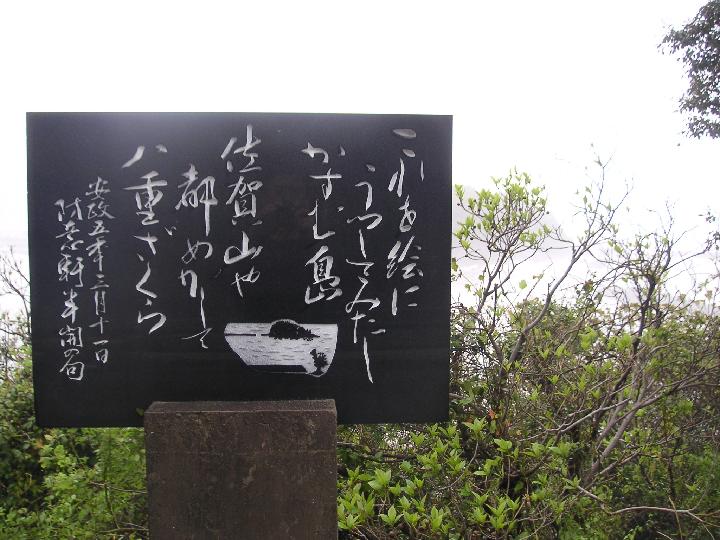 これを絵に
うつしてみたし
かすむ島
佐賀山や
都めかして
八重ざくら
安政五年三月十一日
随意軒半開の句